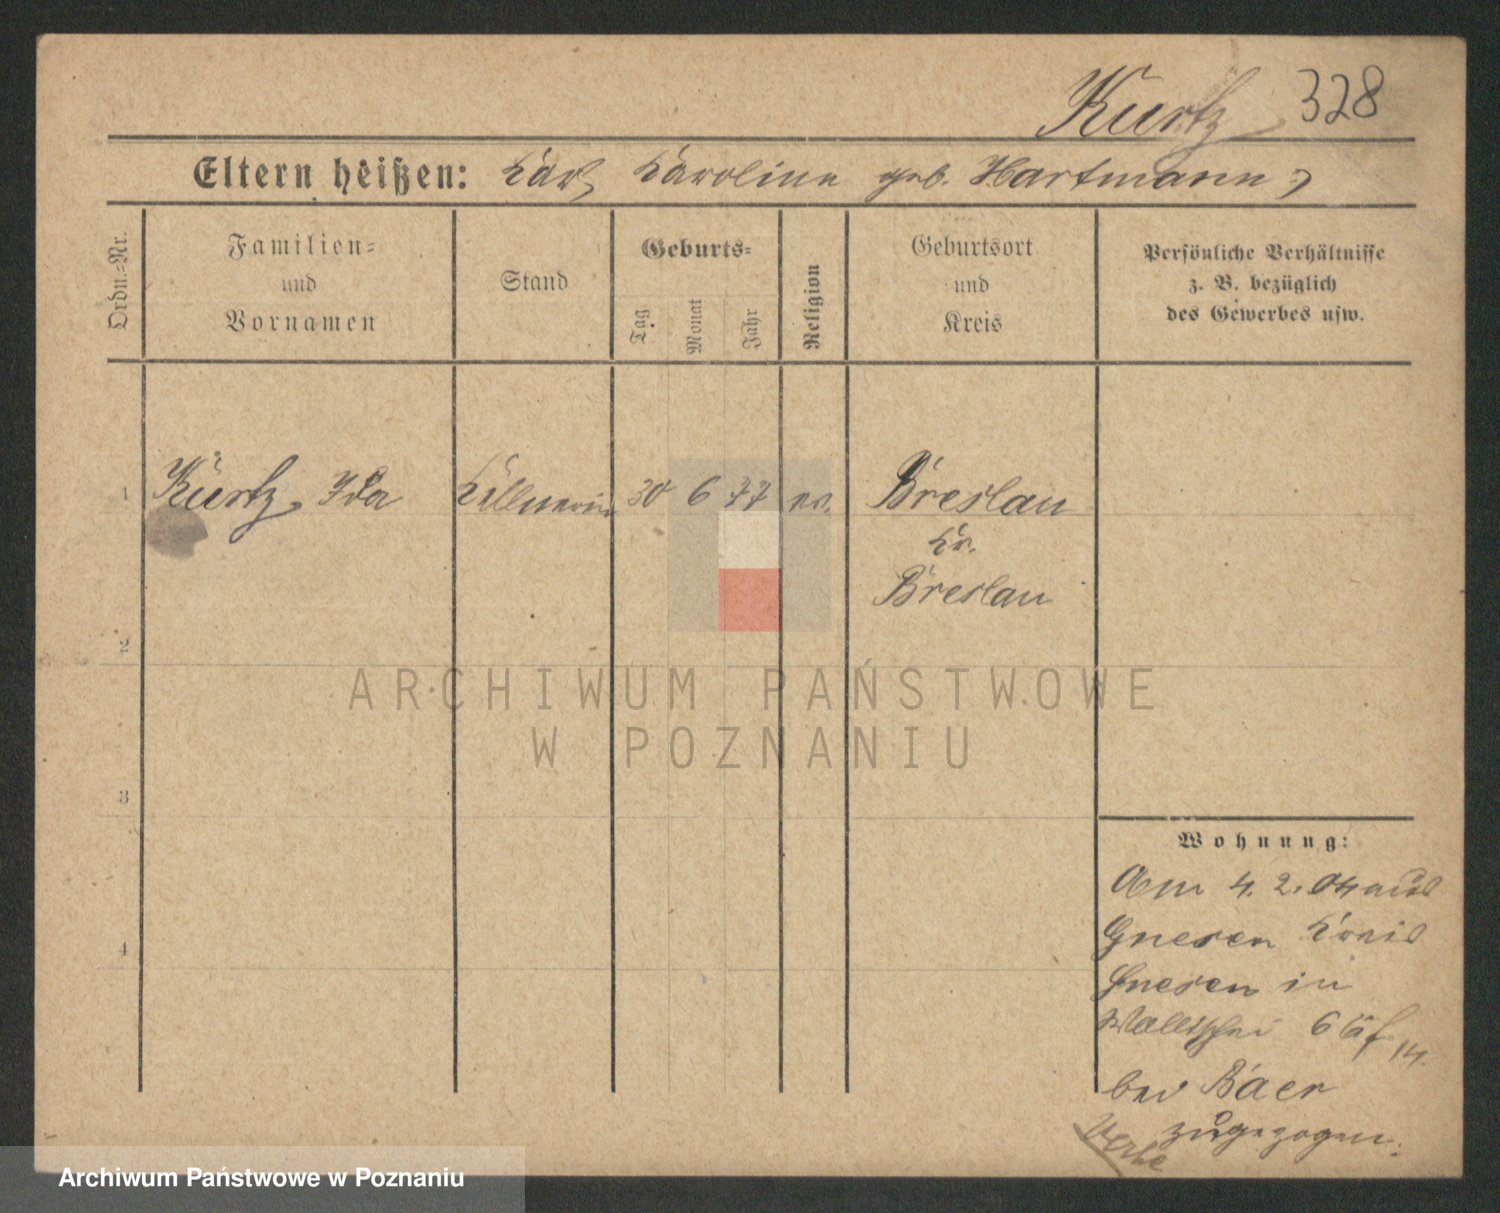 Kurtz 328
Eltern heißen: Karl, Karoline geb. Hartmann,
Ordn.-Nr.
Familien-
und
Vornamen
Stand
Geburts-
Tag
Monat
Jahr
Religion
Geburtsort
und
Kreis
Persönliche Verhältnisse
z. B. bezüglich
des Gewerbes usw.
1 Kurtz, Ida Kellnerin 30 6 77 ev. Breslau
Kr.
Breslau
2
3
4
Wohnung:
Am 4. 2. 04 aus
Gnesen Kreis
Gnesen in
Wallischei
bei Baer
zugezogen.
ARCHIWUM PAŃSTWOWE
W POZNANIU
Archiwum Państwowe w Poznaniu